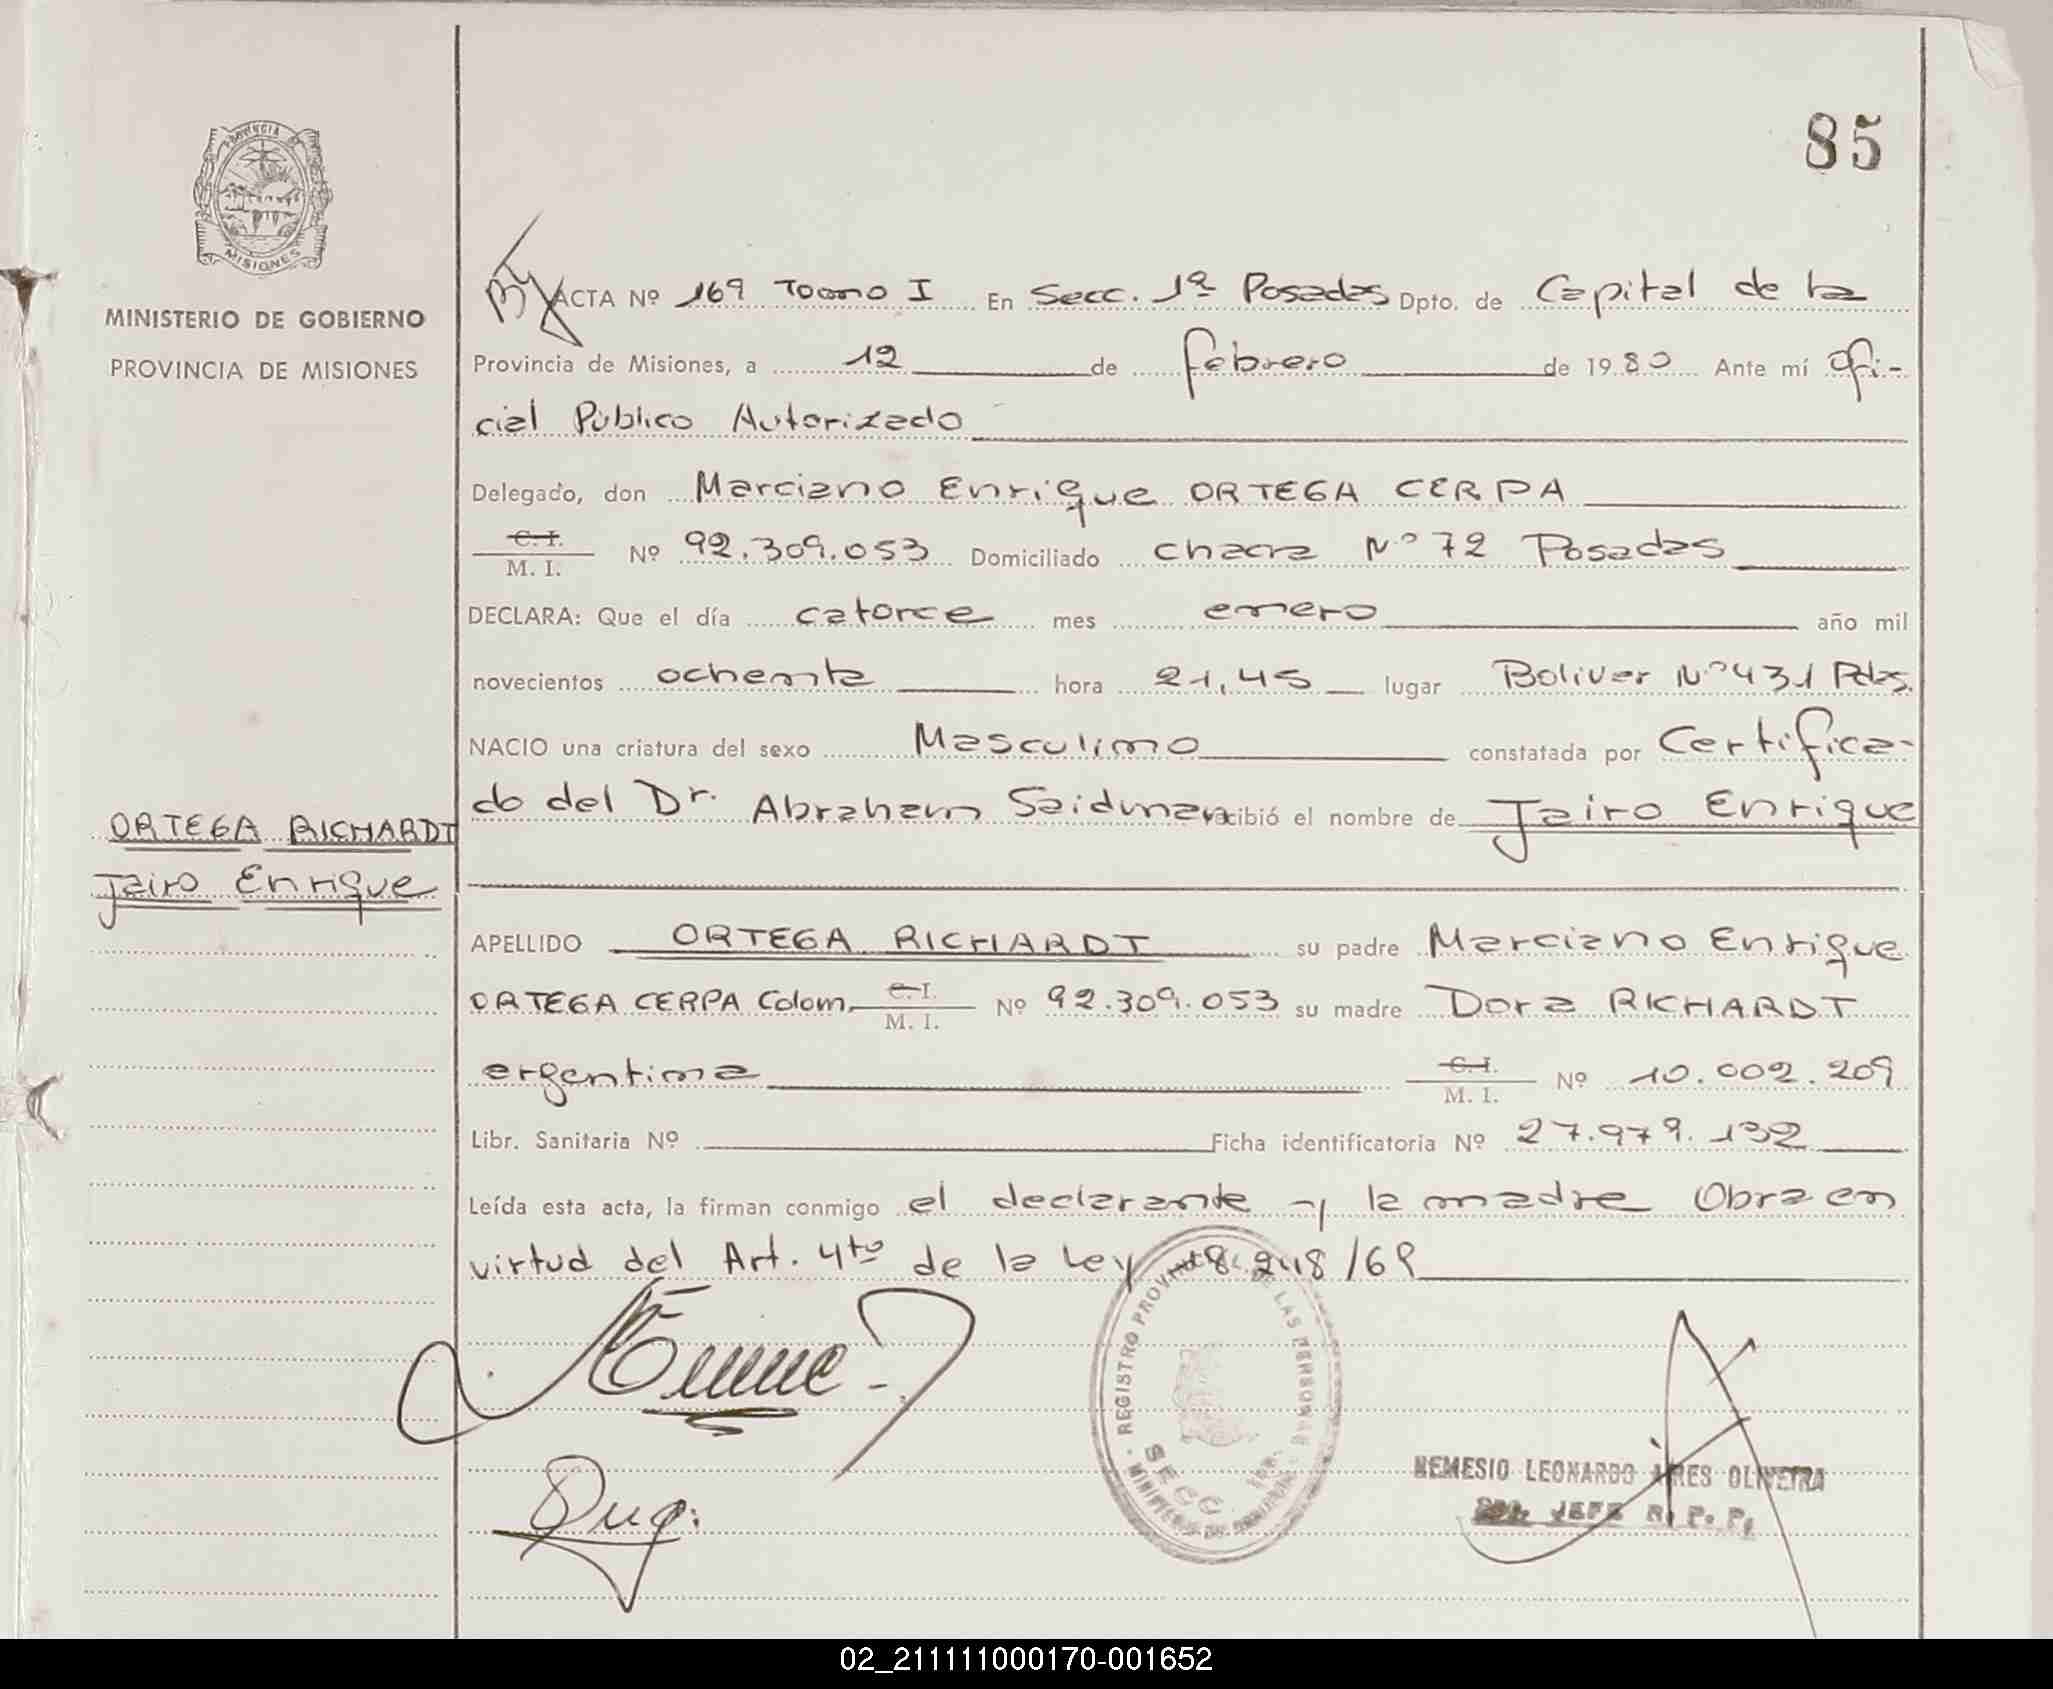 85
PROVINCIA
MISIONES
MINISTERIO DE GOBIERNO
PROVINCIA DE MISIONES
ORTEGA RICHARDT
Jairo Enrique
ACTA Nº 169 Tomo I En Secc. 1ª Posadas Dpto. de Capital de la
Provincia de Misiones, a 12 de febrero de 1980 Ante mí Ofi-
cial Público Autorizado
Delegado, don Marciano Enrique ORTEGA CERPA
C. I.
M. I. Nº 92.309.053 Domiciliado chacra Nº 72 Posadas
DECLARA: Que el día catorce mes enero año mil
novecientos ochenta hora 21,45 lugar Bolivar Nº 431 Pdas.
NACIO una criatura del sexo Masculino constatada por Certifica-
do del Dr. Abraham Saidman recibió el nombre de Jairo Enrique
APELLIDO ORTEGA RICHARDT su padre Marciano Enrique
ORTEGA CERPA Colom. C. I.
M. I. Nº 92.309.053 su madre Dora RICHARDT
argentina C. I.
M. I. Nº 10.002.209
Libr. Sanitaria Nº Ficha identificatoria Nº 27.979.132
Leída esta acta, la firman conmigo el declarante y la madre Obra en
virtud del Art. 4to de la Ley 18.248/69
REGISTRO PROVINCIAL DE LAS PERSONAS
SECC. 1ra.
NEMESIO LEONARDO AIRES OLIVEIRA
JEFE R. P. P.
02_211111000170-001652